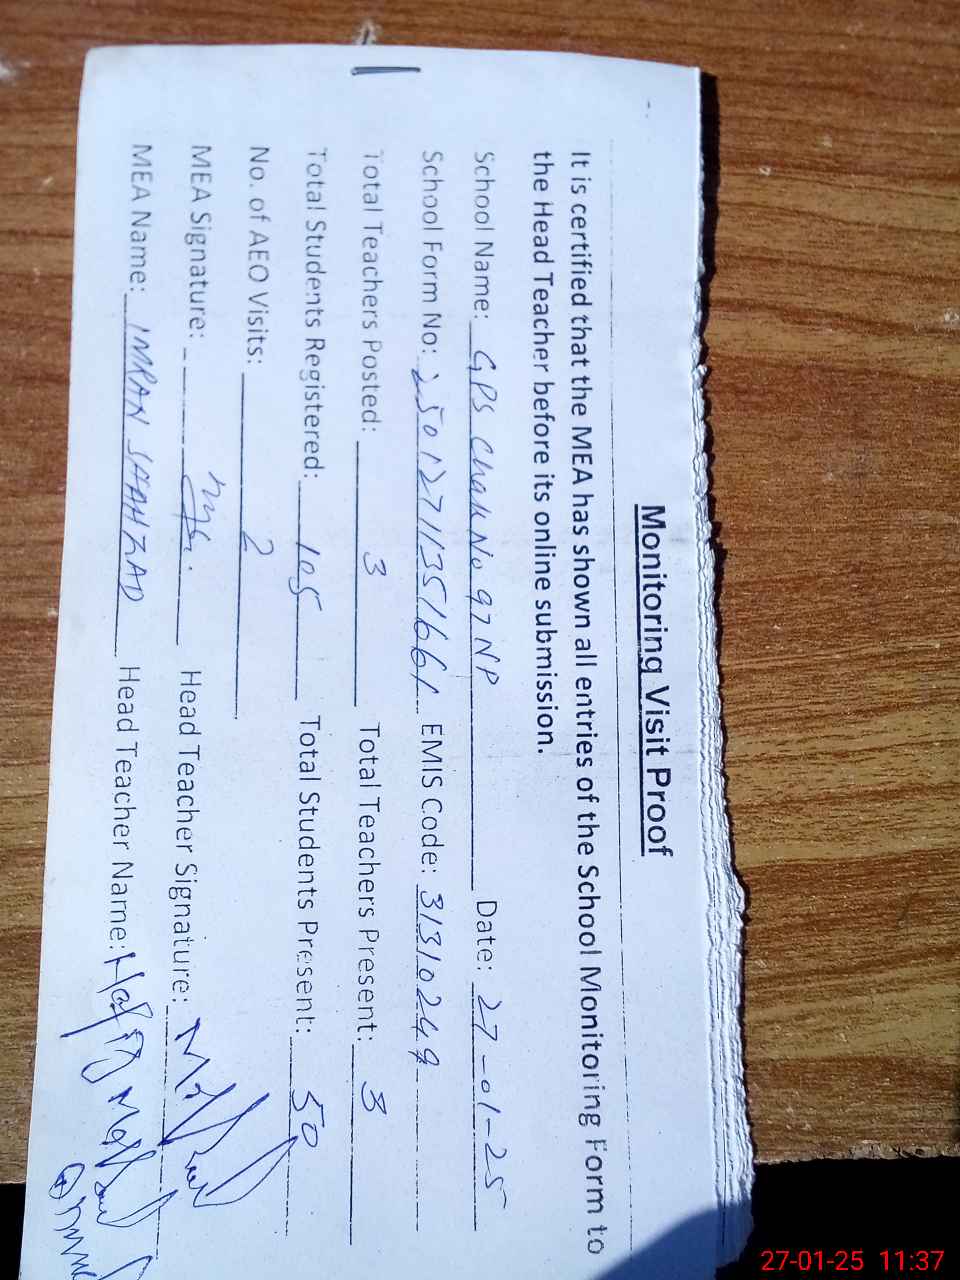 Monitoring Visit Proof
It is certified that the MEA has shown all entries of the School Monitoring Form to
the Head Teacher before its online submission.
School Name: GPS Chak No 97 NP Date: 27-01-25
School Form No: 25012711351661 EMIS Code: 31310249
Total Teachers Posted: 3 Total Teachers Present: 3
Total Students Registered: 105 Total Students Present: 50
No. of AEO Visits: 2
MEA Signature: Head Teacher Signature:
MEA Name: IMRAN SHAHZAD Head Teacher Name:
27-01-25 11:37